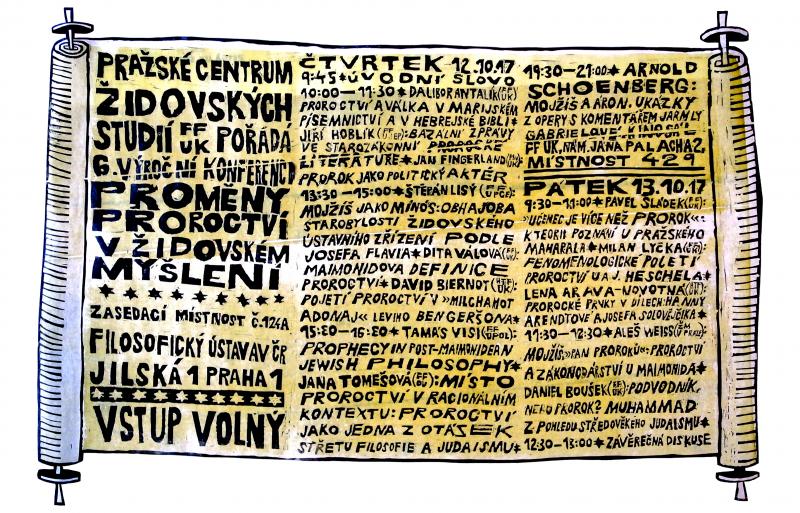 PRAŽSKÉ CENTRUM
ŽIDOVSKÝCH
STUDIÍ FF UK POŘÁDÁ
6. VÝROČNÍ KONFERENCI
PROMĚNY
PROROCTVÍ
V ŽIDOVSKÉM
MYŠLENÍ
ZASEDACÍ MÍSTNOST Č.124A
FILOSOFICKÝ ÚSTAV AV ČR
JILSKÁ 1 PRAHA 1
VSTUP VOLNÝ
ČTVRTEK 12.10.17
9:45 ★ ÚVODNÍ SLOVO
10:00 — 11:30 ★ DALIBOR ANTALÍK (FF UK)
PROROCTVÍ A VÁLKA V MARIJSKÉM
PÍSEMNICTVÍ A V HEBREJSKÉ BIBLI ★
JIŘÍ HOBLÍK: BAZÁLNÍ ZPRÁVY
VE STAROZÁKONNÍ PROROCKÉ
LITERATUŘE ★ JAN FINGERLAND
PROROK JAKO POLITICKÝ AKTÉR
13:30 — 15:00 ★ ŠTĚPÁN LISÝ:
MOJŽÍŠ JAKO MÍNÓS: OBHAJOBA
STAROBYLOSTI ŽIDOVSKÉHO
ÚSTAVNÍHO ZŘÍZENÍ PODLE
JOSEFA FLAVIA ★ DITA VÁLOVÁ:
MAIMONIDOVA DEFINICE
PROROCTVÍ ★ DAVID BIERNOT:
POJETÍ PROROCTVÍ V »MILCHAMOT
ADONAJ« LEVIHO BEN GERŠONA ★
15:30 — 16:30 ★ TAMÁS VISI:
PROPHECY IN POST-MAIMONIDEAN
JEWISH PHILOSOPHY ★
JANA TOMEŠOVÁ: MÍSTO
PROROCTVÍ V RACIONÁLNÍM
KONTEXTU: PROROCTVÍ
JAKO JEDNA Z OTÁZEK
STŘETU FILOSOFIE A JUDAISMU ★
19:30 — 21:00 ★ ARNOLD
SCHOENBERG:
MOJŽÍŠ A ÁRON. UKÁZKY
Z OPERY S KOMENTÁŘEM JARMILY
GABRIELOVÉ
FF UK, NÁM. JANA PALACHA 2,
MÍSTNOST 429
PÁTEK 13.10.17
9:30 — 11:00 ★ PAVEL SLÁDEK:
»UČENEC JE VÍCE NEŽ PROROK«:
K TEORII POZNÁNÍ U PRAŽSKÉHO
MAHARALA ★ MILAN LYČKA:
FENOMENOLOGICKÉ POJETÍ
PROROCTVÍ U A.J. HESCHELA ★
LENA ARAVA-NOVOTNÁ:
PROROCKÉ PRVKY V DÍLECH HANNY
ARENDTOVÉ A JOSEFA SOLOVĚJČIKA ★
11:30 — 12:30 ★ ALEŠ WEISS:
MOJŽÍŠ: »PÁN PROROKŮ«: PROROCTVÍ
A ZÁKONODÁRSTVÍ U MAIMONIDA ★
DANIEL BOUŠEK: PODVODNÍK,
NEBO PROROK? MUHAMMAD
Z POHLEDU STŘEDOVĚKÉHO JUDAISMU ★
12:30 — 13:00 ★ ZÁVĚREČNÁ DISKUSE